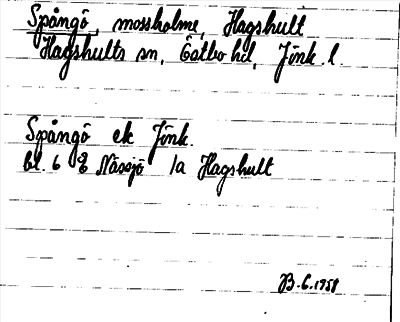 Spångö, mossholme, Hagshult
Hagshults sn, Östbo hd, Jönk. l.
Spångö ek Jönk.
bl. 6 Nässjö 1a Hagshult
B. G. 1958